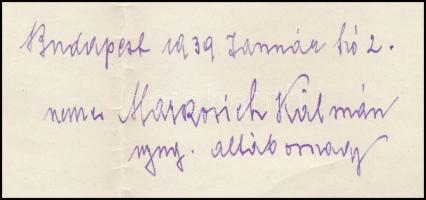 Budapest 1939 Január hó 2.
nemes Markovich Kálmán
nyug. altábornagy